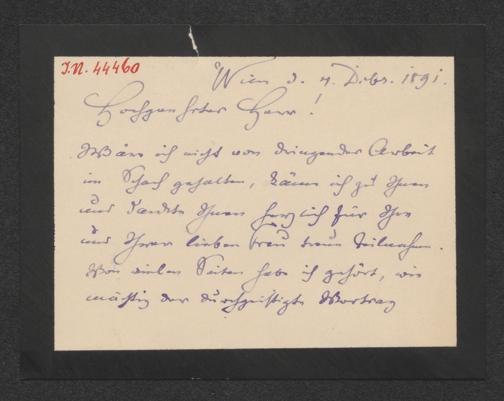 I.N. 44460
Wien d. 4. Dcbr. 1891.
Hochgeehrter Herr!
Wäre ich nicht von dringender Arbeit
im Schach gehalten, käme ich zu Ihnen
und dankte Ihnen herzlich für Ihre
und Ihrer lieben Frau treue Teilnahme.
Von vielen Seiten habe ich gehört, wie
mächtig der durchgeistigte Vortrag